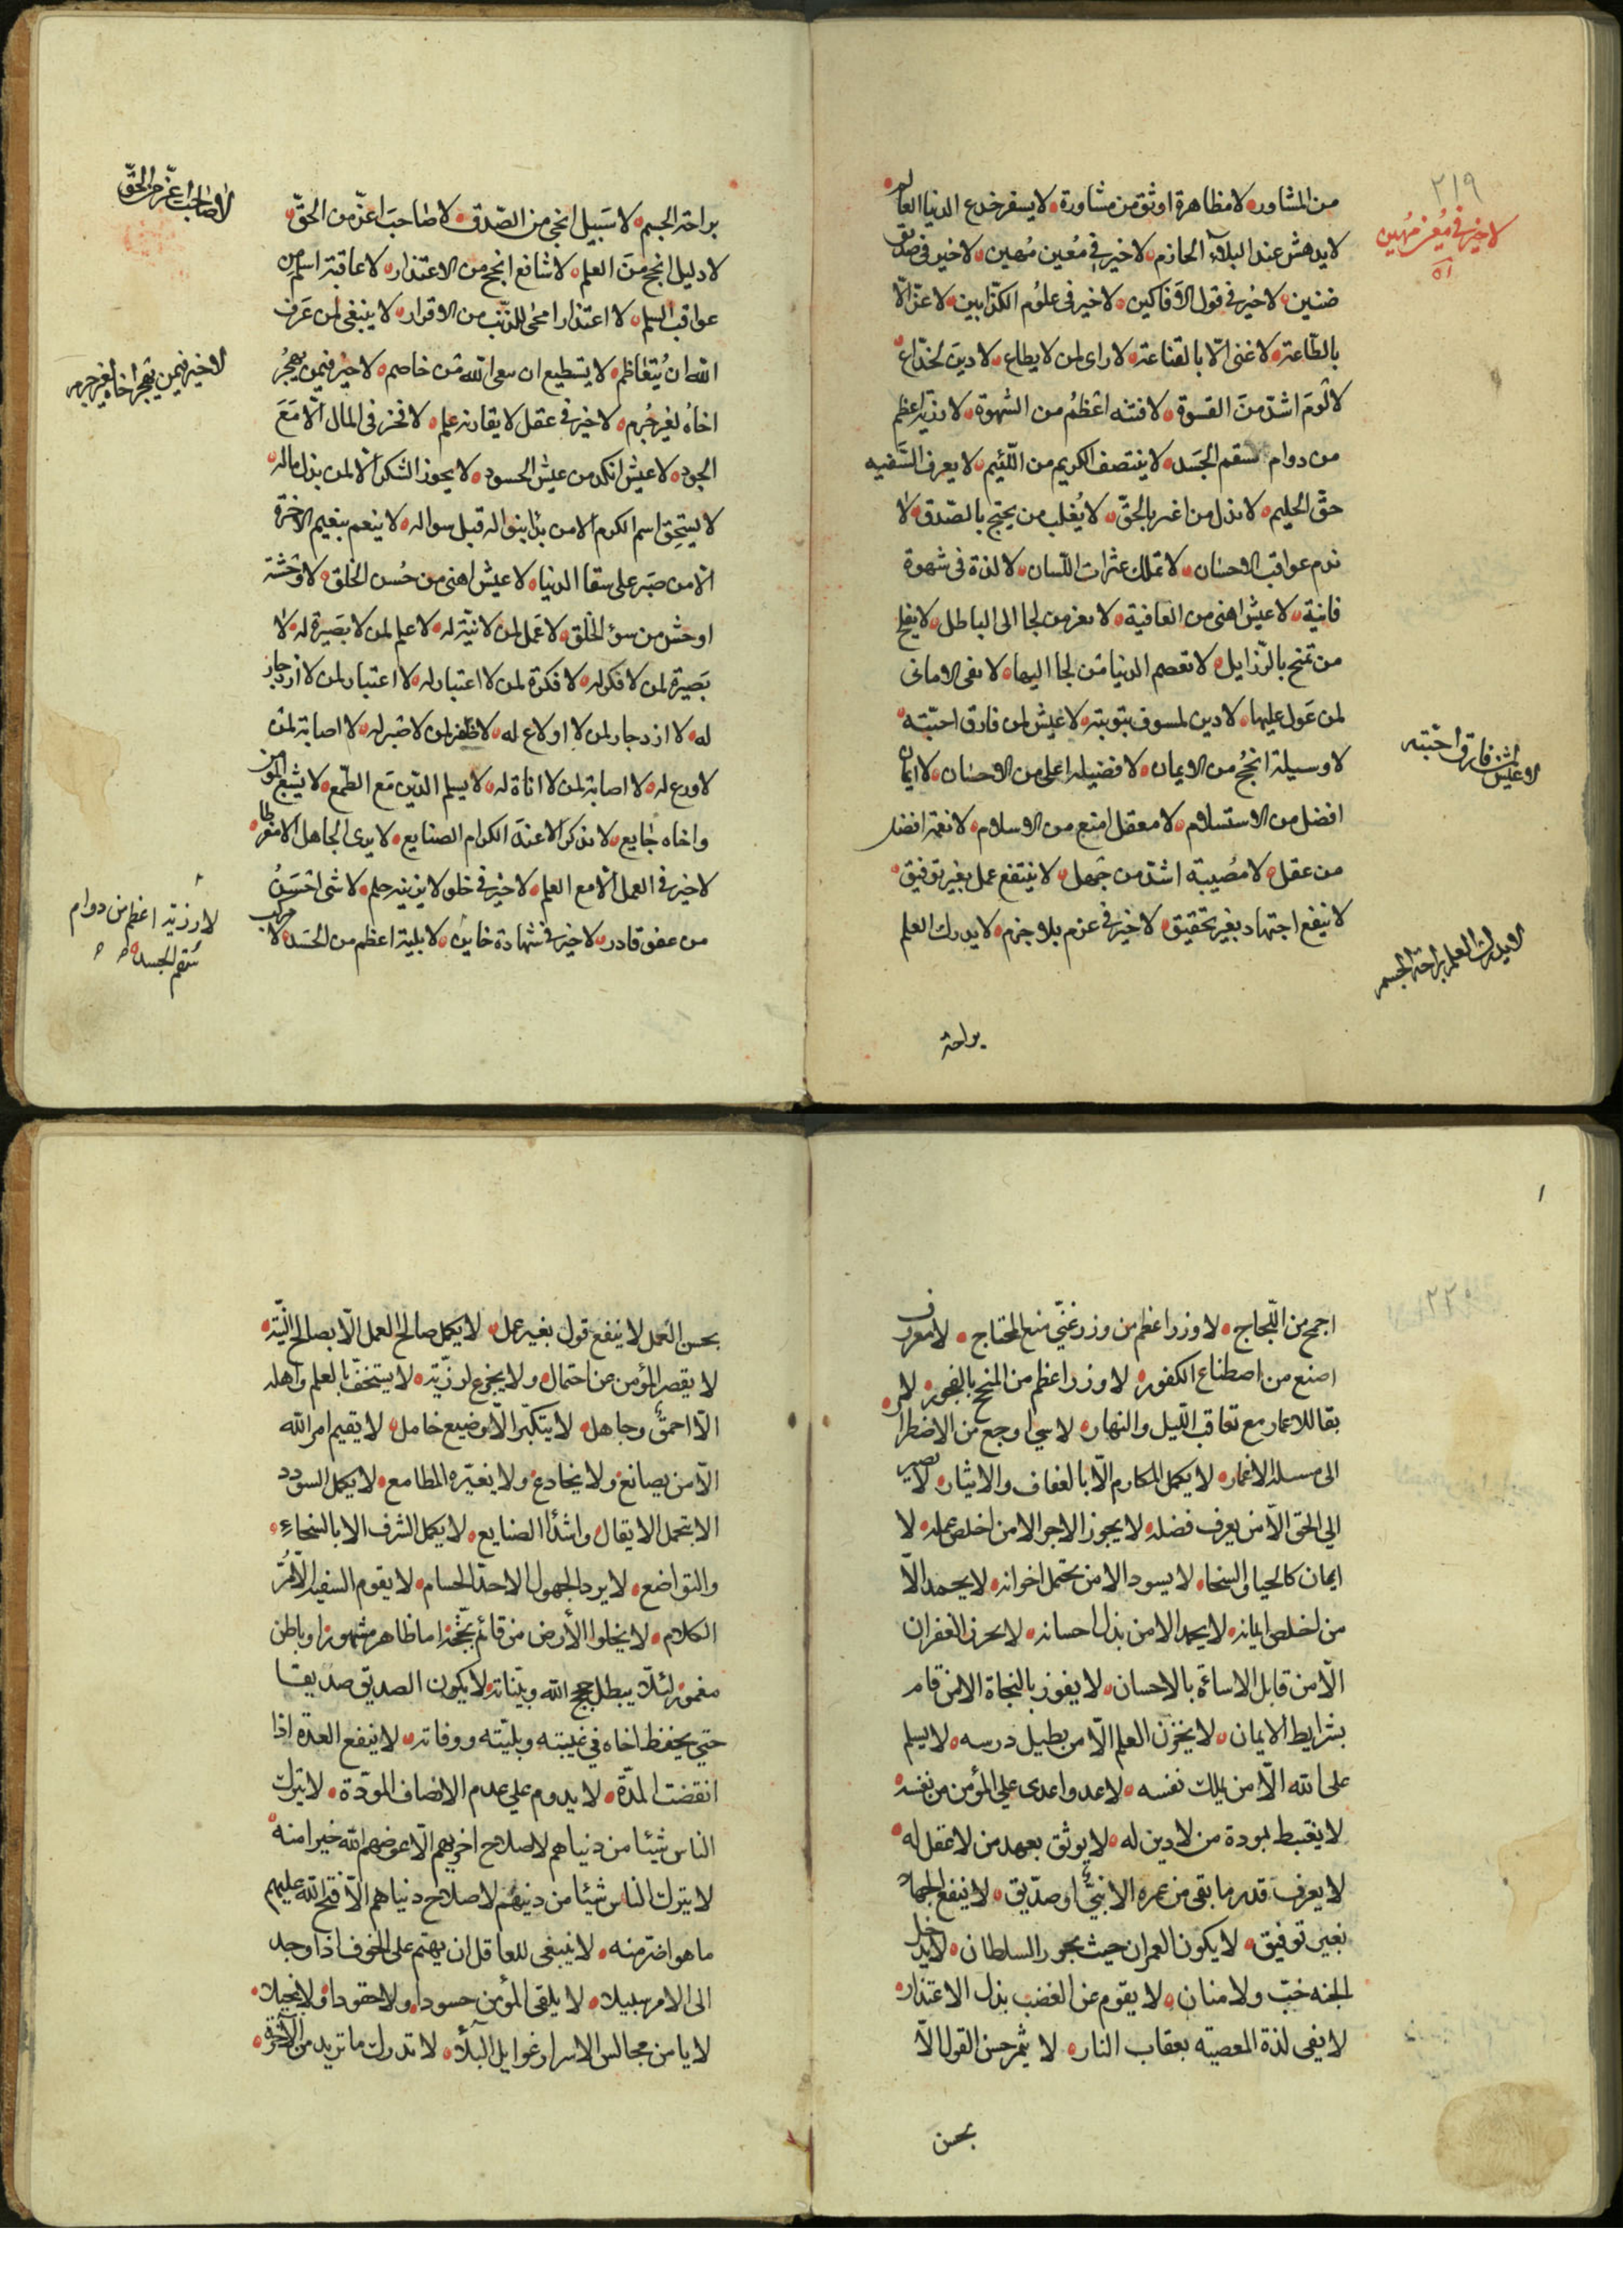 ٢١٩
من المشاور لا مظاهرة اوثق من مشاورة لا يسفر خدع الدنيا العالم
لا يدهش عند البلاء الحازم لا خير في معين مهين لا خير في صديق
ضنين لا خير في قول الافاكين لا خير في علوم الكذابين لا عز الّا
بالطّاعة لا غنى الّا بالقناعة لا راى لمن لا يطاع لا دين لخدّاع
لا لؤم اشدّ من القسوة لا فتنه اعظم من الشهوة لا رزية اعظم
من دوام سقم الجسد لا ينتصف الكريم من اللّئيم لا يعرف السّفيه
حقّ الحليم لا يذل من اعتز بالحقّ لا يُغلب من يحتج بالصّدق لا
ندم عواقب الاحسان لا تملك عثرات اللّسان لا لذة في شهوة
فانية لا عيش اهنى من العافية لا يعز من لجا الى الباطل لا يفلح
من تمنح بالرّزايل لا تعصم الدنيا من لجا اليها لا تفى الامانى
لمن عَول عليها لا دين لمسوف بتوبته لا عيش لمن فارق احبّته
لا وسيلة انجح من الايمان لا فضيله اعلى من الاحسان لا ايمان
افضل من الاستسلام لا معقل امنع من الاسلام لا نعمة افضل
من عقل لا مُصيبة اشدّ من جهل لا ينتفع عمل بغير توفيق
لا ينفع اجتهاد بغير تحقيق لا خير في عزم بلا حزم لا يدرك العلم
براحة
لا خير في معين مهين
لا عيش لمن فارق احبّته
لا يدرك العلم براحة الجسم
براحة الجسم لا سَبيل انجى من الصّدق لا صاحبَ اعزّ من الحقّ
لا دليل انجح منَ العلم لا شافع انجح من الاعتذار لا عاقبة اسلم من
عواقب السلم لا اعتذار امحى للذّنب من الاقرار لا ينبغى لمن عَرف
اللّه ان يُتعاظم لا يستطيع ان يتقى اللّه من خاصم لا خيْر فيمن يهجُر
اخاهُ لغير جُرم لا خير في عقل لا يقارنه علم لا فخر في المال الّا مَعَ
الجود لا عيش انكد من عيش الحسود لا يحوز الشكر الّا لمن بذل ماله
لا يستحق اسم الكرم الّا من بدأ بنواله قبل سواله لا ينعم بنعيم الاخرة
الّا من صَبَر على شقا الدنيا لا عيش اهنى من حُسن الخلق لا وحشة
اوحش من سوء الخلق لا عَمل لمن لا نيّة له لا علم لمن لا بَصيرة له لا
بَصيرة لمن لا فكر له لا فكرة لمن لا اعتبار له لا اعتبار لمن لا ازدجار
له لا ازدجار لمن لا اقلاع له لا ظفر لمن لا صَبر له لا اصابة لمن
لا ورع له لا اصابة لمن لا اناة له لا يسلم الدّين مَع الطّمع لا يشبع المؤمن
واخاه جايع لا تذكر الّا عند الكرام الصنايع لا يرى الجاهل الّا مفرطا
لا خير في العمل الّا مع العلم لا خير في خلق لا يزينه حلم لا شى احسَنُ
من عفو قادر لا خير في شهادة خاين لا بلية اعظم من الحَسَد لا مركب
لا صاحب اعزّ من الحقّ
لا خير فيمن يهجر اخاه لغير جرم
لا رزيّة اعظم من دوام
سَقم الجسد
١
٢٢٠
اجمح من اللّجاج لا وزر اعظم من وزر غنيّ منع المحتاج لا معروف
اضنع من اصطناع الكفور لا وزر اعظم من المنح بالفجور لا
بقا للاعمار مع تعاقب اللّيل والنهار لا شي اوجع من الاضطرار
الى مسئلة الاغمار لا يكمل المكارم الّا بالعفاف والايثار لا يصير
الي الحق الّا من يعرف فضله لا يجوز الاجر الا من اخلص عمله لا
ايمان كالحيا والسخا لا يسود الا من تحتمل اخوانه لا يحمد الّا
من اخلص ايمانه لا يحمد الا من بذل احسانه لا يحرز الغفران
الّا من قابل الاساءة بالاحسان لا يفوز بالنجاة الا من قام
بشرايط الايمان لا يخزن العلم الّا من يطيل درسه لا يسلم
على الله الّا من يملك نفسه لا عدو اعدى علي المؤمن من نفسه
لا يغتبط بمودة من لا دين له لا يوثق بعهد من لا عقل له
لا يعرف قدر ما بقى من عمره الا نبيّ او صدّيق لا ينفع الجهاد
بغير توفيق لا يكون العمران حيث يجور السلطان لا يدخل
الجنه خبّ ولا منان لا يقوم عز الغضب بذل الاعتذار
لا يفى لذة المعصيه بعقاب النار لا يثمر حسن القول الّا
بحسن
بحسن العَمل لا ينفع قول بغير عمل لا يكمل صالح العمل الّا بصالح النّيّة
لا يقصر المؤمن عن احتمال ولا يجزع لرزيّة لا يستخفّ بالعلم واهله
الّا احمقٌ وجاهل لا يتكبّر الّا وضيع خامل لا يقيم امر الله
الّا من يصانع ولا يخادع ولا تغيّره المطامع لا يكمل السودد
الا بتحمل الاثقال واسْداء الصنايع لا يكمل الشرف الا بالسخاءِ
والتواضع لا يرد الجهول الا حدّ الحسام لا يقوم السفيه الّا مُرّ
الكلام لا يخلوا الأرض من قائم بحجّة اما ظاهر مشهور او باطن
مغمور لئلّا يبطل حجج الله وبيّناته لا يكون الصديق صديقا
حتي يحفظ اخاه في غيبته وبليّته ووفاته لا ينفع العدّة اذا
انقضت المدّة لا يدوم علي عدم الانصاف المودّة لا يترك
الناس شيئا من دنياهم لاصلاح اخريهم الّا عوضهم الله خيرا منه
لا يترك الناس شيئا من دينهُم لاصلاح دنياهم الّا فتح الله عليهم
ما هو اضرّ منه لا ينبغى للعاقل ان يهتم على الخوف اذا وجد
الى الامر سبيلا لا يلقى المؤمن حسودا ولا حقودا ولا بخيلا
لا يامن مجالس الاسرار غوايل البلاء لا تدرك ما تريد من الآخرة